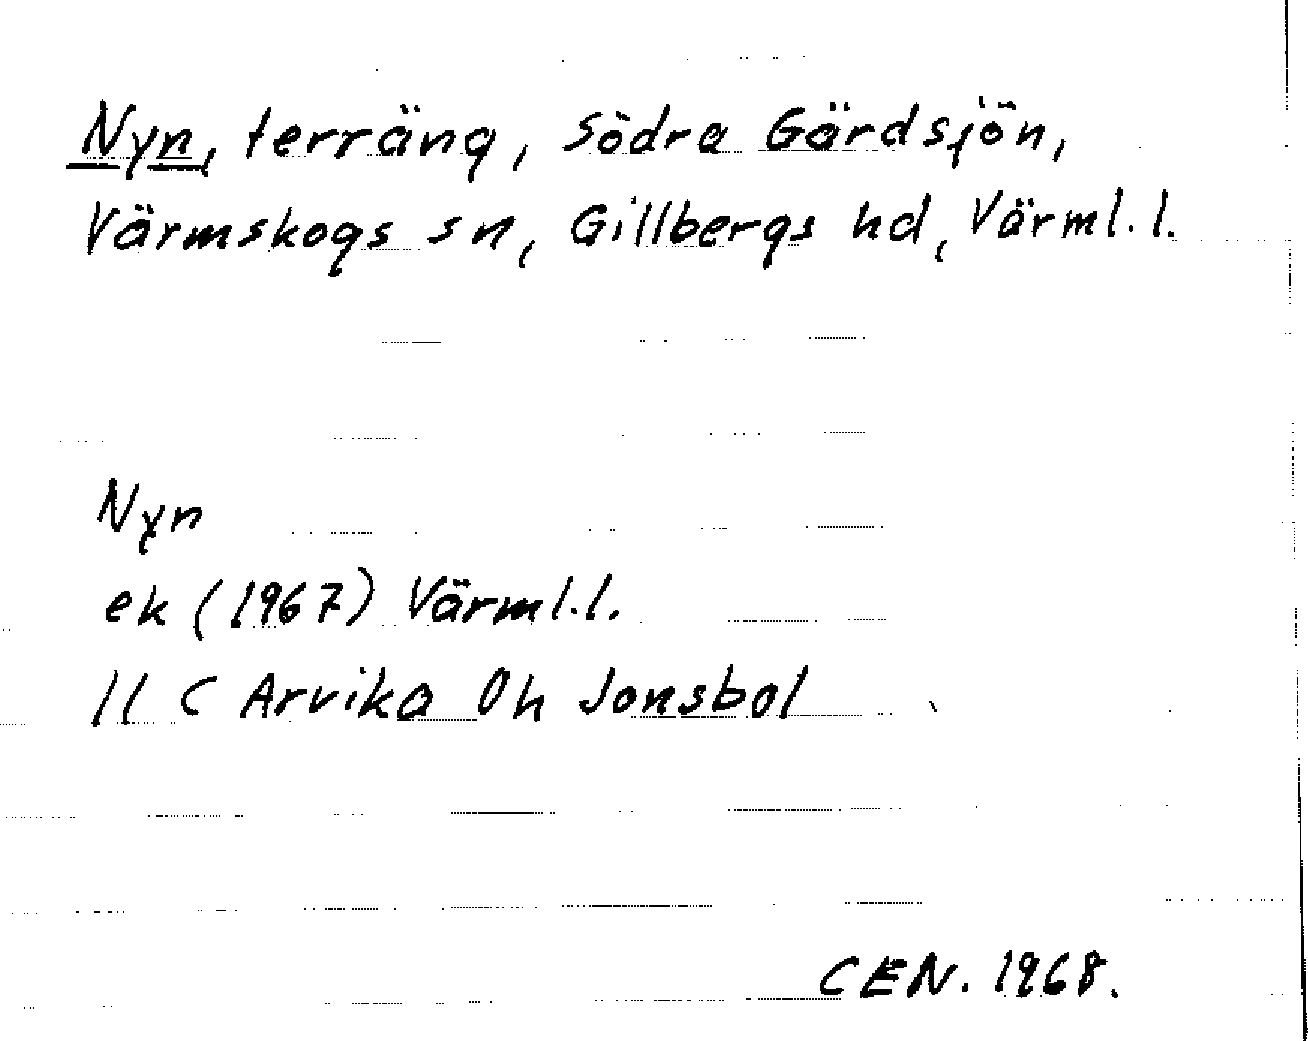 Nyn, terräng, Södra Gärdsjön,
Värmskogs sn, Gillbergs hd, Värml. l.
Nyn
ek (1967) Värml. l.
11 C Arvika 0h Jonsbol
CEN. 1968.